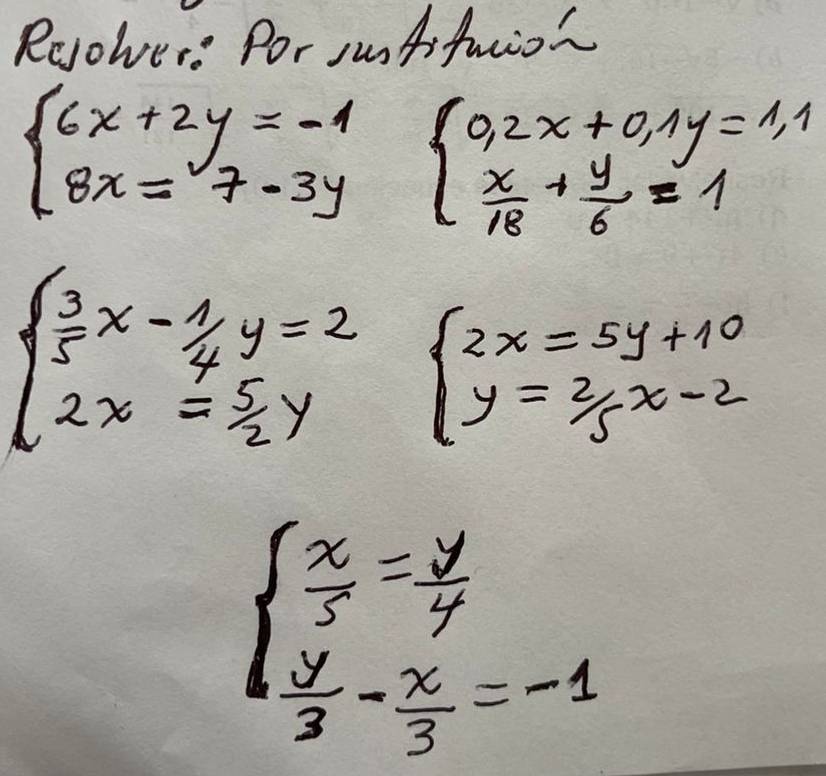 Resolver: Por sustitución
{6x + 2y = -1
8x = 7 - 3y
{0,2x + 0,1y = 1,1
x/18 + y/6 = 1
{3/5 x - 1/4 y = 2
2x = 5/2 y
{2x = 5y + 10
y = 2/5 x - 2
{x/5 = y/4
y/3 - x/3 = -1